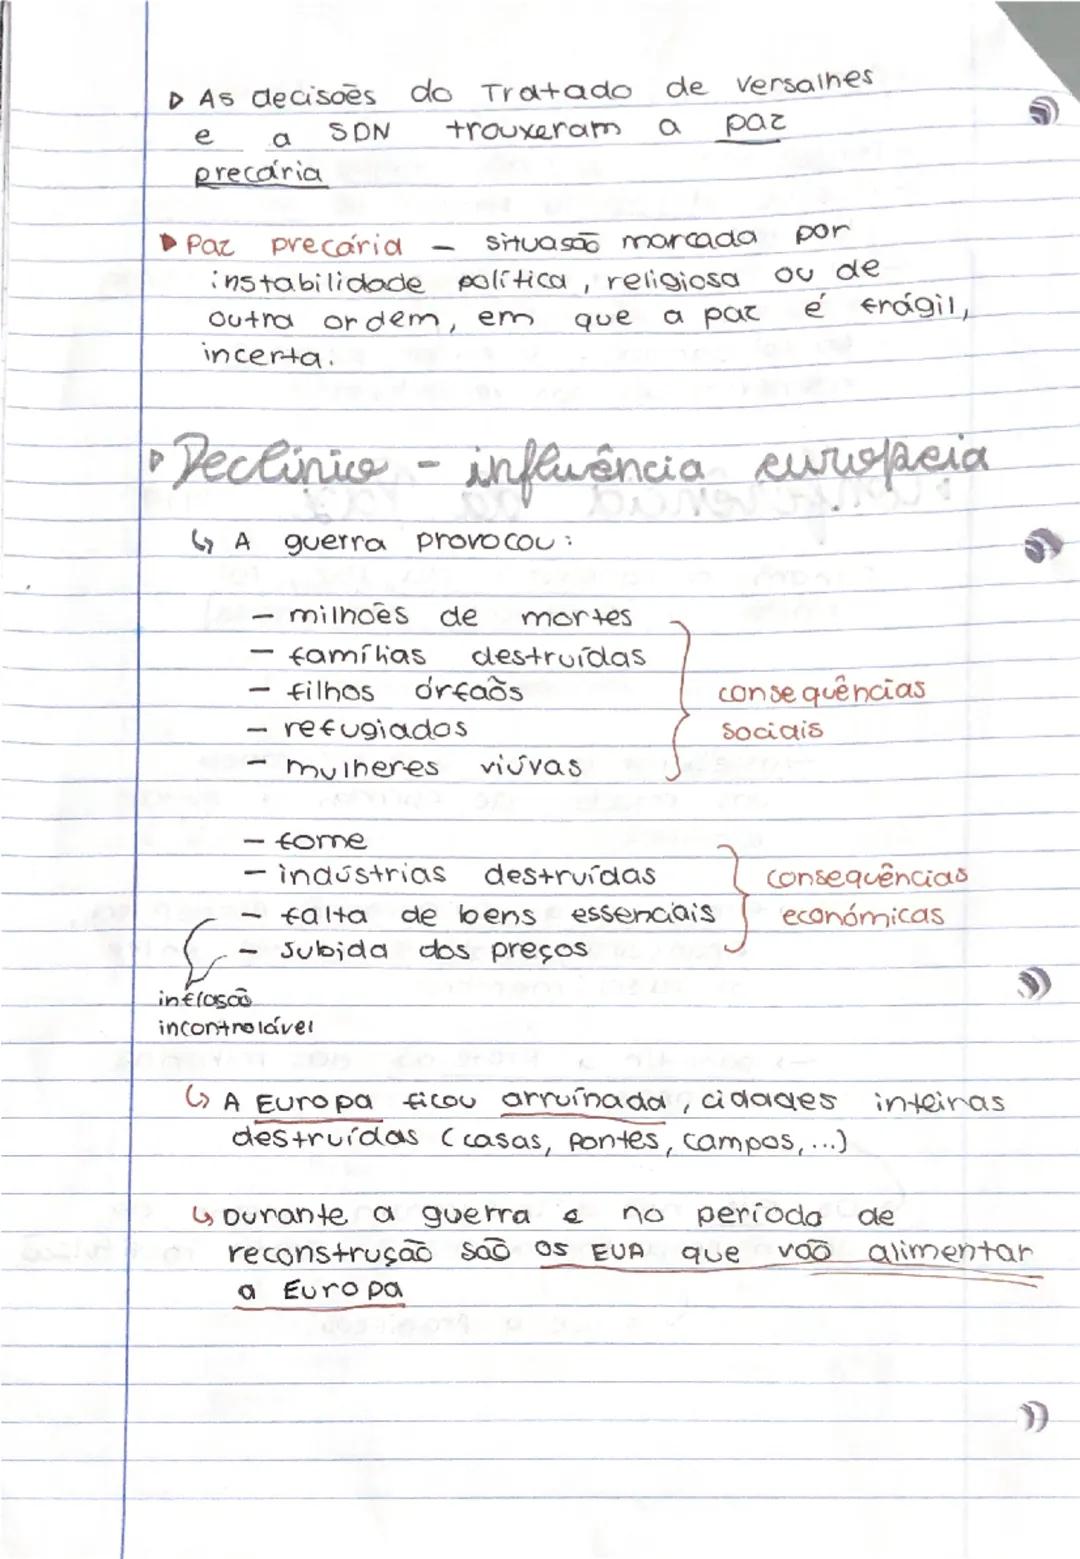 ▷ As decisões do Tratado de Versalhes
e a SDN trouxeram a paz
precária
▶ Paz precária – situasão marcada por
instabilidade política, religiosa ou de
outra ordem, em que a paz é frágil,
incerta.
▸ Declínico - influência europeia
↳ A guerra provocou:
- milhões de mortes
- famílias destruídas
- filhos órfãos
- refugiados
- mulheres viúvas
consequências
sociais
- fome
- indústrias destruídas
- falta de bens essenciais
- subida dos preços
consequências
económicas
inflasão
incontrolável
↳ A Europa ficou arruínada, cidades inteiras
destruídas (casas, pontes, campos,...)
↳ Durante a guerra e no período de
reconstrução são os EUA que vão alimentar
a Europa